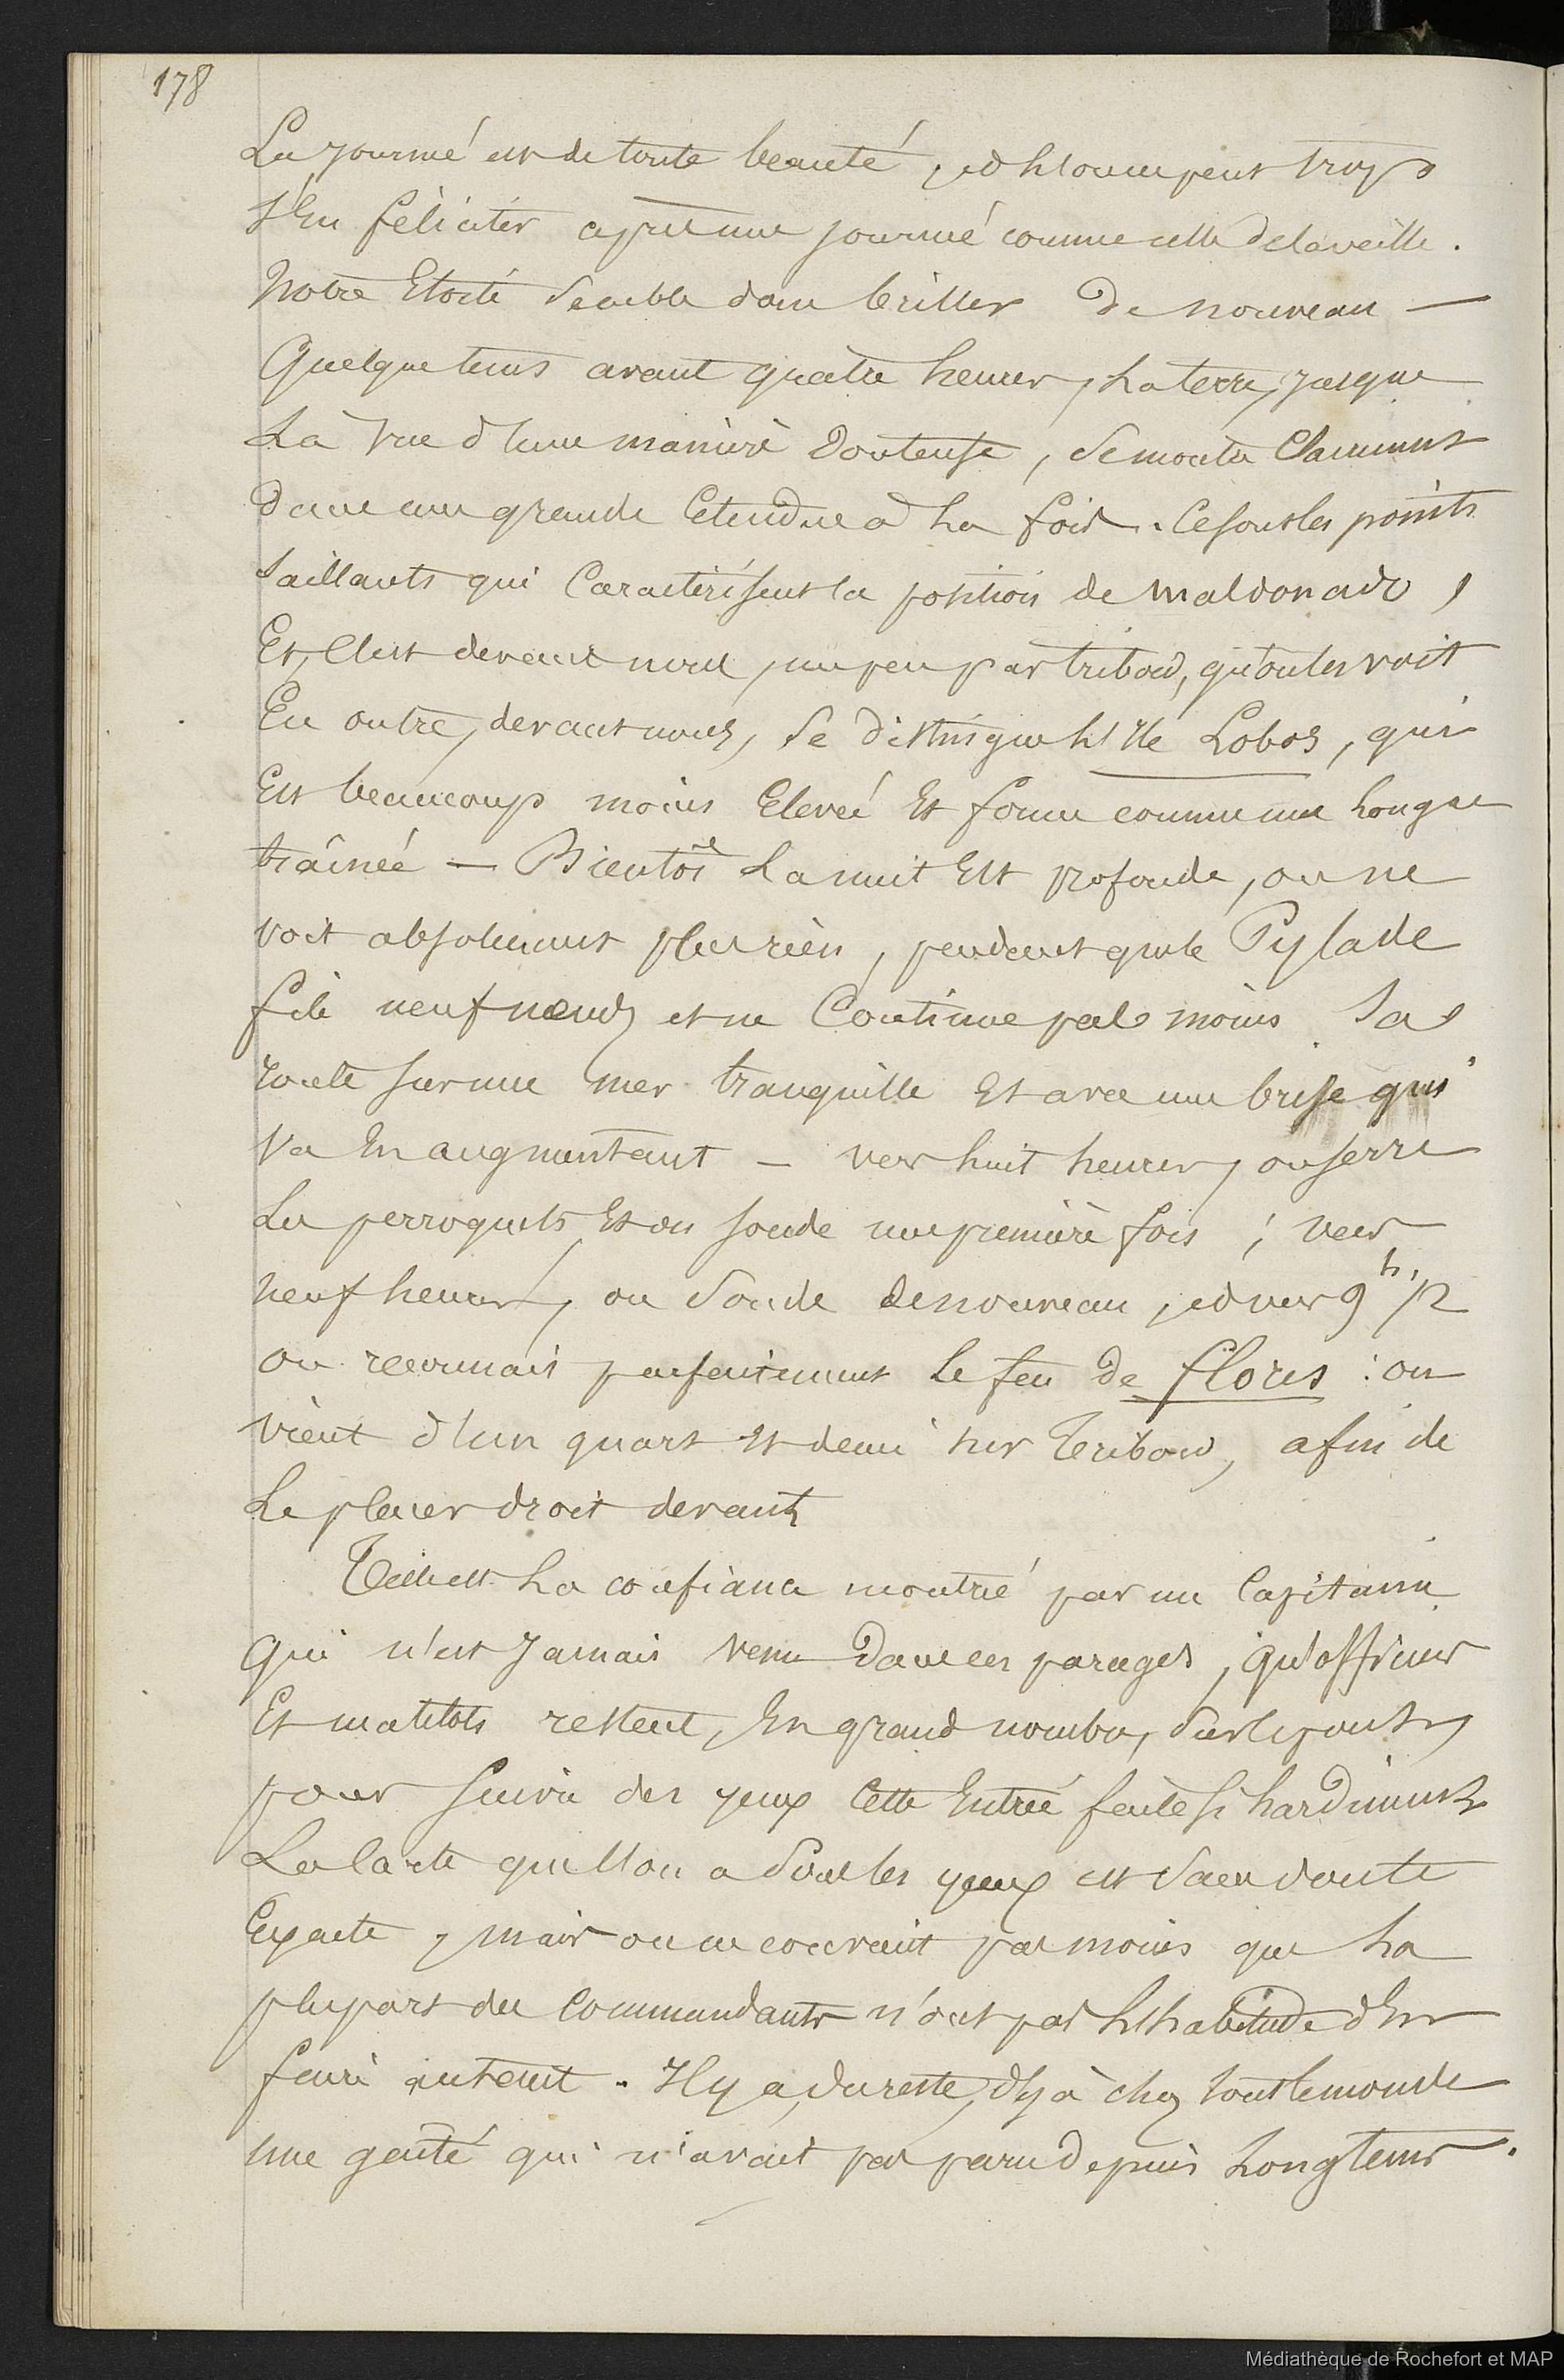 178
La journée est de toute beauté, et l'on ne peut trop
s'en féliciter après une journée comme celle de la veille.
Notre Etoile semble donc briller de nouveau —
Quelque tems avant quatre heures, la terre, jusque
là vue d'une manière douteuse, se montre clairement
dans une grande étendue à la fois. Ce sont les points
saillants qui caractérisent la position de Maldonado,
Et, c'est devant nous, un peu par tribord, qu'on les voit
En outre, devant nous, se distingue l'Ile Lobos, qui
Est beaucoup moins élevée et forme comme une longue
traînée — Bientôt la nuit Est profonde, on ne
voit absolument plus rien, pendant que le Pylade
file neuf nœuds et ne continue pas moins sa
route sur une mer tranquille Et avec une brise qui
va En augmentant — vers huit heures, on serre
Les perroquets Et on sonde une première fois ; vers
neuf heures, on sonde de nouveau, et vers 9h 1/2
on reconnaît parfaitement le feu de flores : on
vient d'un quart et demi sur Tribord, afin de
Le placer droit devant
Telle est la confiance montrée par un Capitaine
qui n'est Jamais venu dans ces parages, qu'officiers
Et matelots restent, En grand nombre, sur le pont,
pour suivre des yeux cette Entrée faite si hardiment
La carte que l'on a sous les yeux est sans doute
Exacte, mais on ne convient pas moins que la
plupart des commandants n'ont pas l'habitude d'En
faire autant. Il y a, du reste, déjà chez tout le monde
une gaîté qui n'avait pas paru depuis longtems.
Médiathèque de Rochefort et MAP